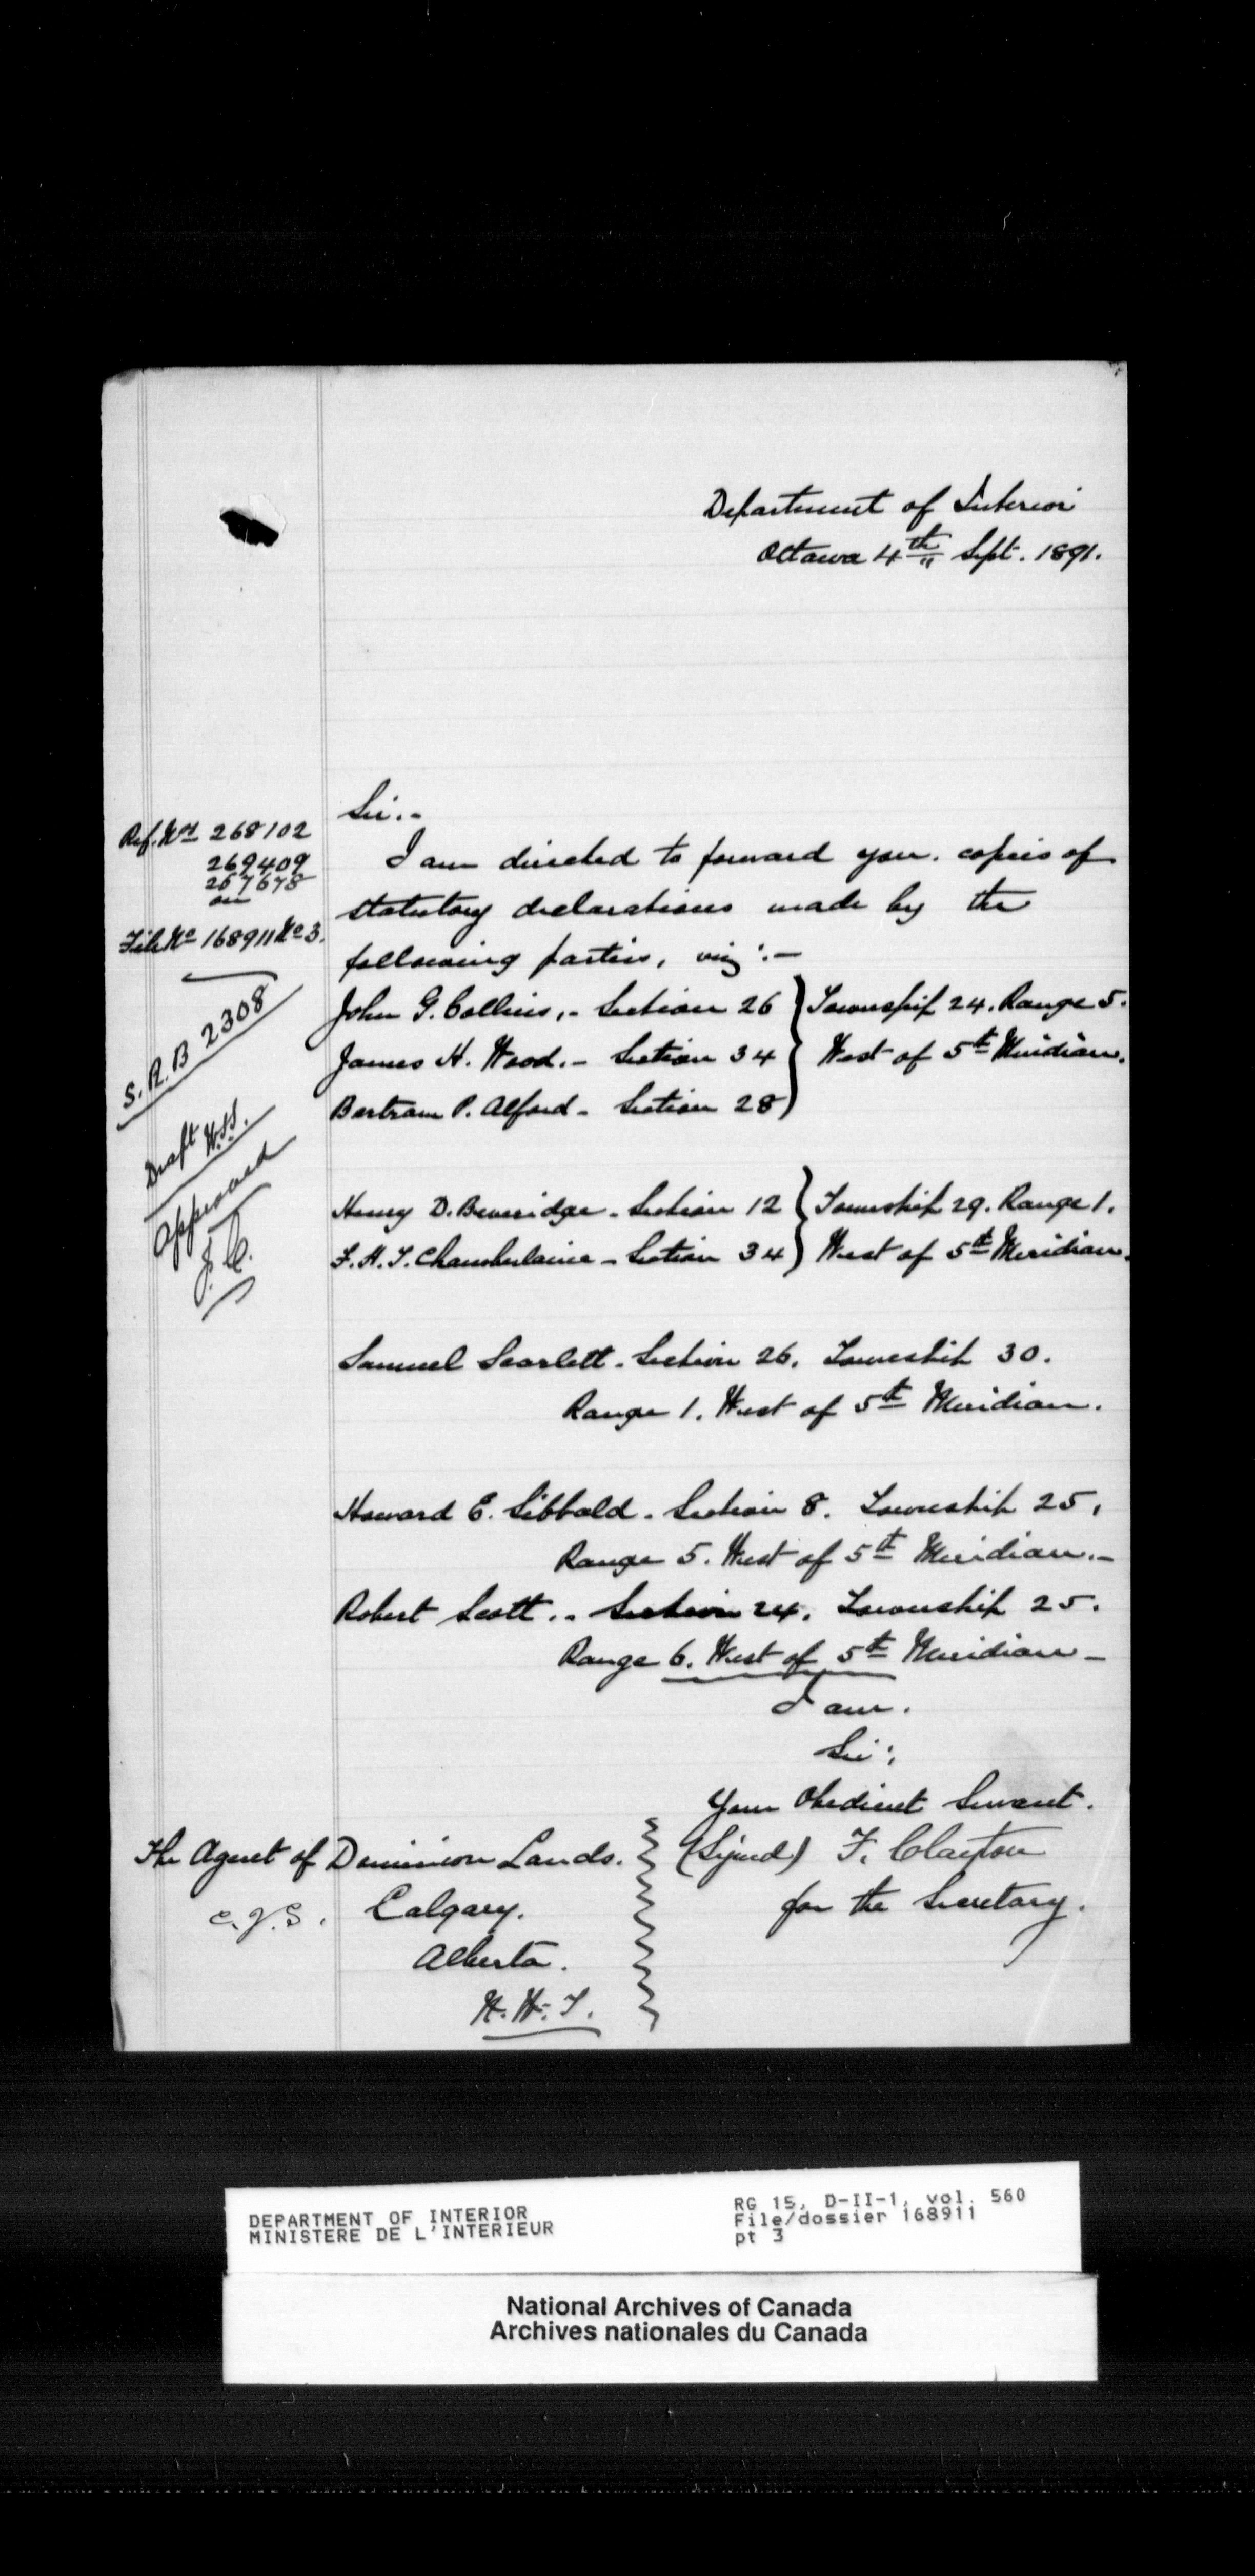 Department of Interior
Ottawa 4th Sept. 1891.
Sir.-
Ref. Nos 268102
269409
267678
on
File No 168911 No 3.
S.R.B 2308
Draft H.H.
Approved
J.C.
I am directed to forward you. copies of
statutory declarations made by the
following parties, viz:-
John G. Collins,- Section 26 } Township 24. Range 5.
James H. Wood.- Section 34 } West of 5th Meridian.
Bertram P. Alford- Section 28 }
Henry D. Beveridge- Section 12 } Township 29. Range 1.
F.H.T. Chamberlaine- Section 34 } West of 5th Meridian.
Samuel Scarlett- Section 26. Township 30.
Range 1. West of 5th Meridian.
Howard E. Sibbald- Section 8. Township 25,
Range 5. West of 5th Meridian.-
Robert Scott..- Section 24. Township 25.
Range 6. West of 5th Meridian-
I am.
Sir;
Your Obedient Servant.
(Signd) F. Clayton
for the Secretary.
The Agent of Dominion Lands.
C.J.S. Calgary.
Alberta.
N.W.T.
DEPARTMENT OF INTERIOR
MINISTERE DE L'INTERIEUR
RG 15, D-II-1, vol. 560
File/dossier 168911
pt 3
National Archives of Canada
Archives nationales du Canada